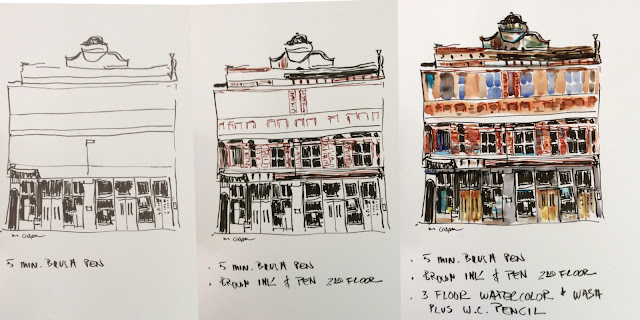 5 MIN. BRUSH PEN
· 5 MIN. BRUSH PEN
· BROWN INK & PEN 2ND FLOOR
· 5 MIN. BRUSH PEN
· BROWN INK & PEN 2ND FLOOR
· 3 FLOOR WATERCOLOR & WASH
PLUS W.C. PENCIL